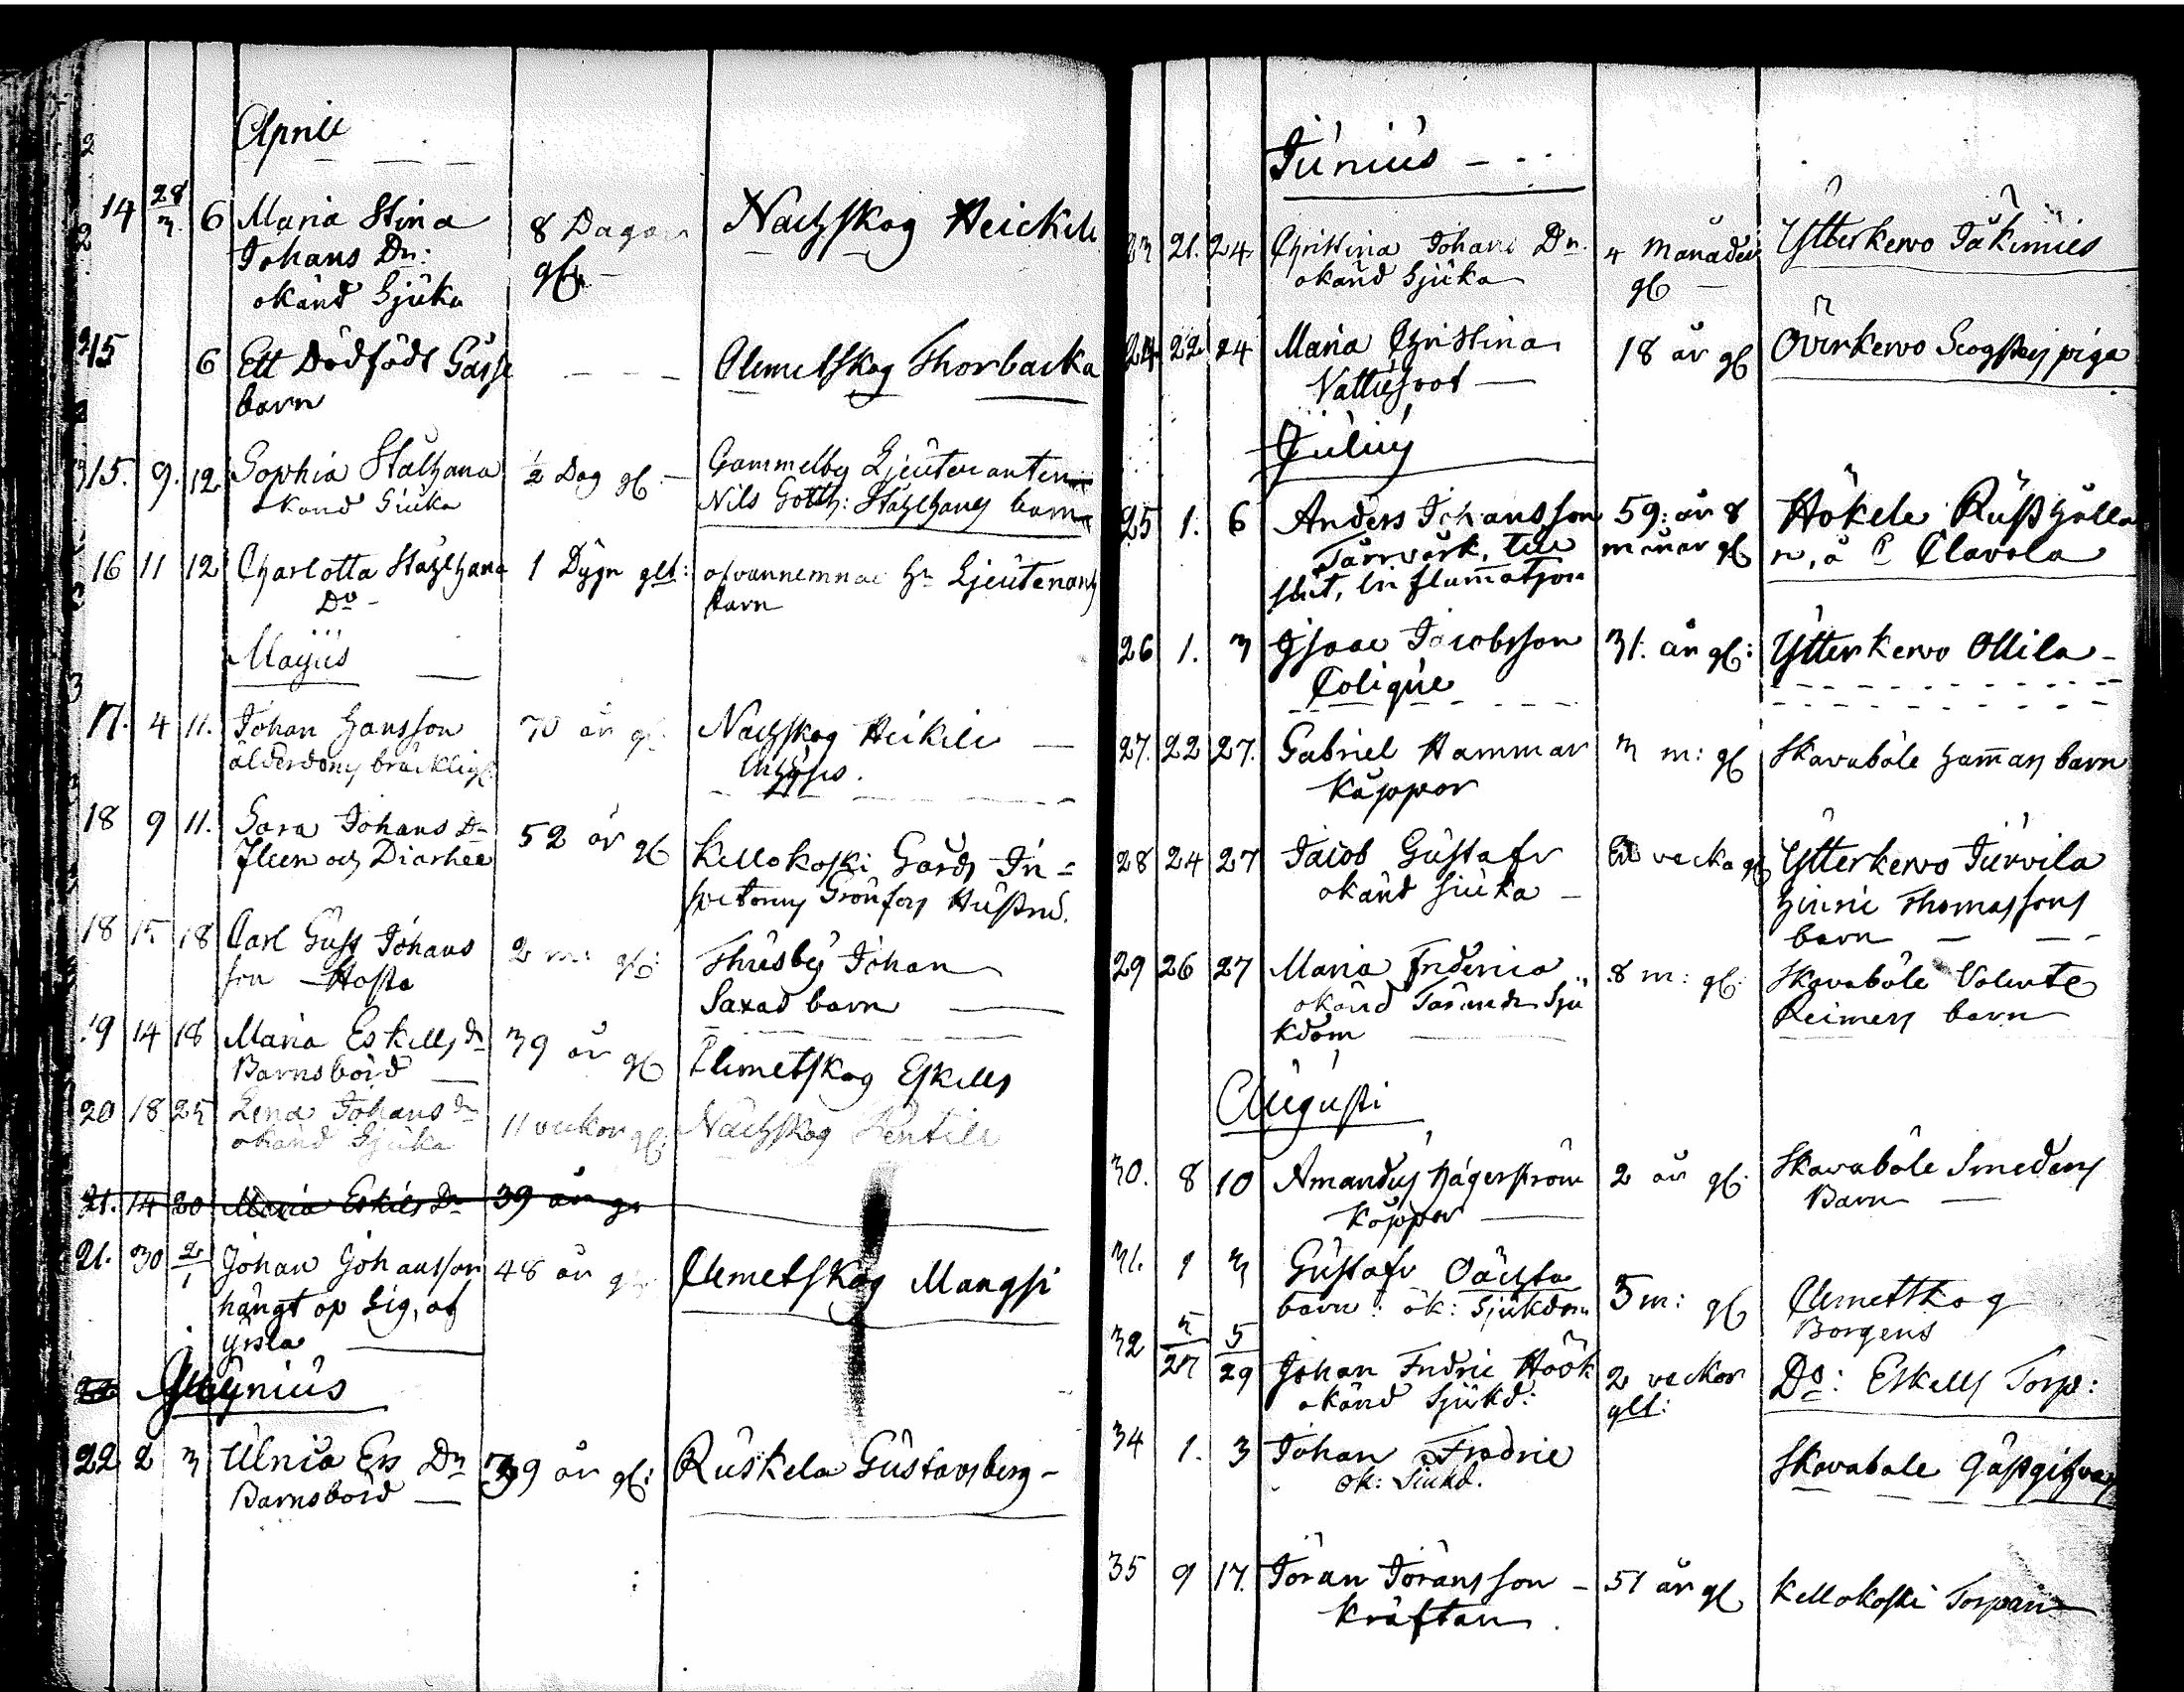 Aprill
14 28/3 6 Maria Stina 8 Dagar Nachskog Heickile
Johans Dr: gl:
okänd Sjuka
15 6 Ett Dödfödt Gåsse - - - Clemetskog Thorbacka
barn
15. 9. 12 Sophia Stålhana ½ Dag gl. Gammelby Lieutenanten
okand Siuka Nils Gotth: Stahlhans barn
16 11 12 Charlotta Stahlhana 1 Dygn glt: ofvannemnde Hr Ljeutenants
Do - barn
Majus
17. 4 11. Johan Hansson 70 år gl. Nachskog Heikile
ålderdoms bräcklig:
18 9 11. Sara Johans Dr 52 år gl Kellokoski Gårds In=
Fleen och Diarhee spectorns Grönfors Hustru.
18 15 18 Carl Gust Johans 2 m: gl: Thusby Johan
son Hosta Saxas barn
19 14 18 Maria Eskills dr 39 år gl Clemetskog Eskills
Barnsbörd
20 18 25 Lena Johans dr 11 veckor gl: Nachskog Pentile
okänd Sjuka
21. 14 20 Maria Eskils Dr 39 år gl
21. 30 2/1 Johan Johansson 48 år gl. Clemetskog Mangsi
hängt op sig, af
yrsla
Junius
22 2 3 Ulrica Ers Dr 39 år gl: Ruskela Gustavsberg -
Barnsbörd
Junius - - -
23 21. 24 Christina Johans Dr. 4 Månader Ytterkervo Jäkimies
okänd Sjuka gl -
24 22 24 Maria Christina 18 år gl Överkervo Scogsters piga
Vattusoot
Julius
25 1. 6 Anders Johansson 59: år 8 Hökele Rusthålla
Tärrvärk, till månar gl n, å Clavola
slut, Inflam̅atjon
26 1. 3 Isaac Jacobsson 31. år gl: Ytterkervo Ollila -
Colique
27. 22 27. Gabriel Hammar 3 m: gl Skavaböle Ham̅ars barn
Kåppor
28 24 27 Jacob Gustafv En vecka gl Ytterkervo Jurvila
okänd siuka - Hinric Thomassons
barn
29 26 27 Maria Frderica 8 m: gl: Skavaböle Valente
okänd Tärande Sju Reimers barn
kdom
Augusti
30. 8 10 Amandus Hägerström 2 år gl. Skavaböle Smedens
Kåppor Barn
31. 1 3 Gustafv Oächta 5 m: gl Clemettskog
barn: ok: Sjukdom Borgens
32 5/27 5/29 Johan Fredric Höök 2 veckor Do: Eskells Torp:
okänd Sjukd: glt:
34 1. 3 Johan Fredric Skavabole Gästgifvars
ok: Siukd.
35 9 17. Jöran Jöransson - 51 år gl Kellokoski Torpare
Kräftan.